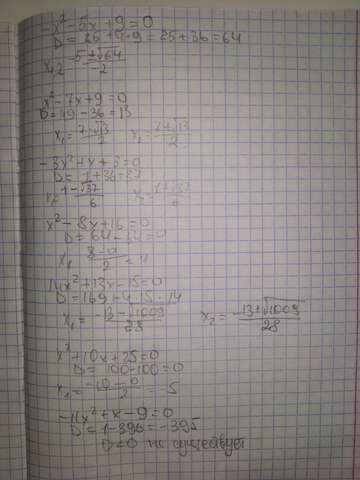 x² - 5x + 9 = 0
D = 25 + 4·9 = 25 + 36 = 64
x₁,₂ = -5 ± √64 / -2
x² - 7x + 9 = 0
D = 49 - 36 = 13
x₁ = 7 - √13 / 2 x₂ = 7 + √13 / 2
-3x² + x + 3 = 0
D = 1 + 36 = 37
x₁ = 1 - √37 / 6 x₂ = 1 + √37 / 6
x² - 8x + 16 = 0
D = 64 - 64 = 0
x₁ = 8 - 0 / 2 = 4
14x² + 13x - 15 = 0
D = 169 - 4·15·14
x₁ = -13 - √1009 / 28 x₂ = -13 + √1009 / 28
x² + 10x + 25 = 0
D = 100 - 100 = 0
x₁ = -10 - 0 / 2 = -5
-11x² + x - 9 = 0
D = 1 - 396 = -395
D < 0 не существует